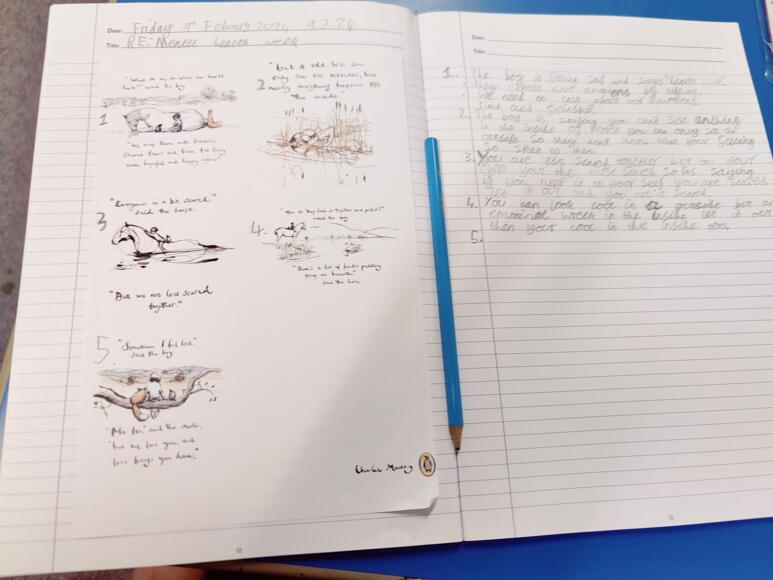 Date: Friday 9th February 2024 9.2.24
Title: RE: Mental health week
1
"What do we do when our hearts
hurt?" asked the boy.
"We wrap them with friendship,
shared tears and time, till they
wake hopeful and happy again."
2
"Isn't it odd. We can
only see our outsides, but
nearly everything happens on
the inside."
3
"Everyone is a bit scared."
said the horse.
"But we are less scared
together."
4.
"How do they look so together and perfect?"
asked the boy
"There's a lot of frantic paddling
going on beneath"
said the horse
5
"Sometimes I feel lost."
said the boy
"Me too," said the mole,
"but we love you, and
love brings you home."
Charlie Mackesy
12
Date:
Title:
1. The boy is feeling sad and says hearts hurt.
They
emotions by
We need to talk about our emotions.
Time and friendship.
2. The boy is saying you can't see anything
in the inside of people you can only see the
outside so they don't know what your feeling
so to them
3. You are less scared together but on your
own your the most scared so its saying
if you keep it to your self you are scared
let it out and you aren't scared.
4. You can look cool in a outside but an
emotional wreck in the inside let it out
then your cool in the inside too.
5.
13